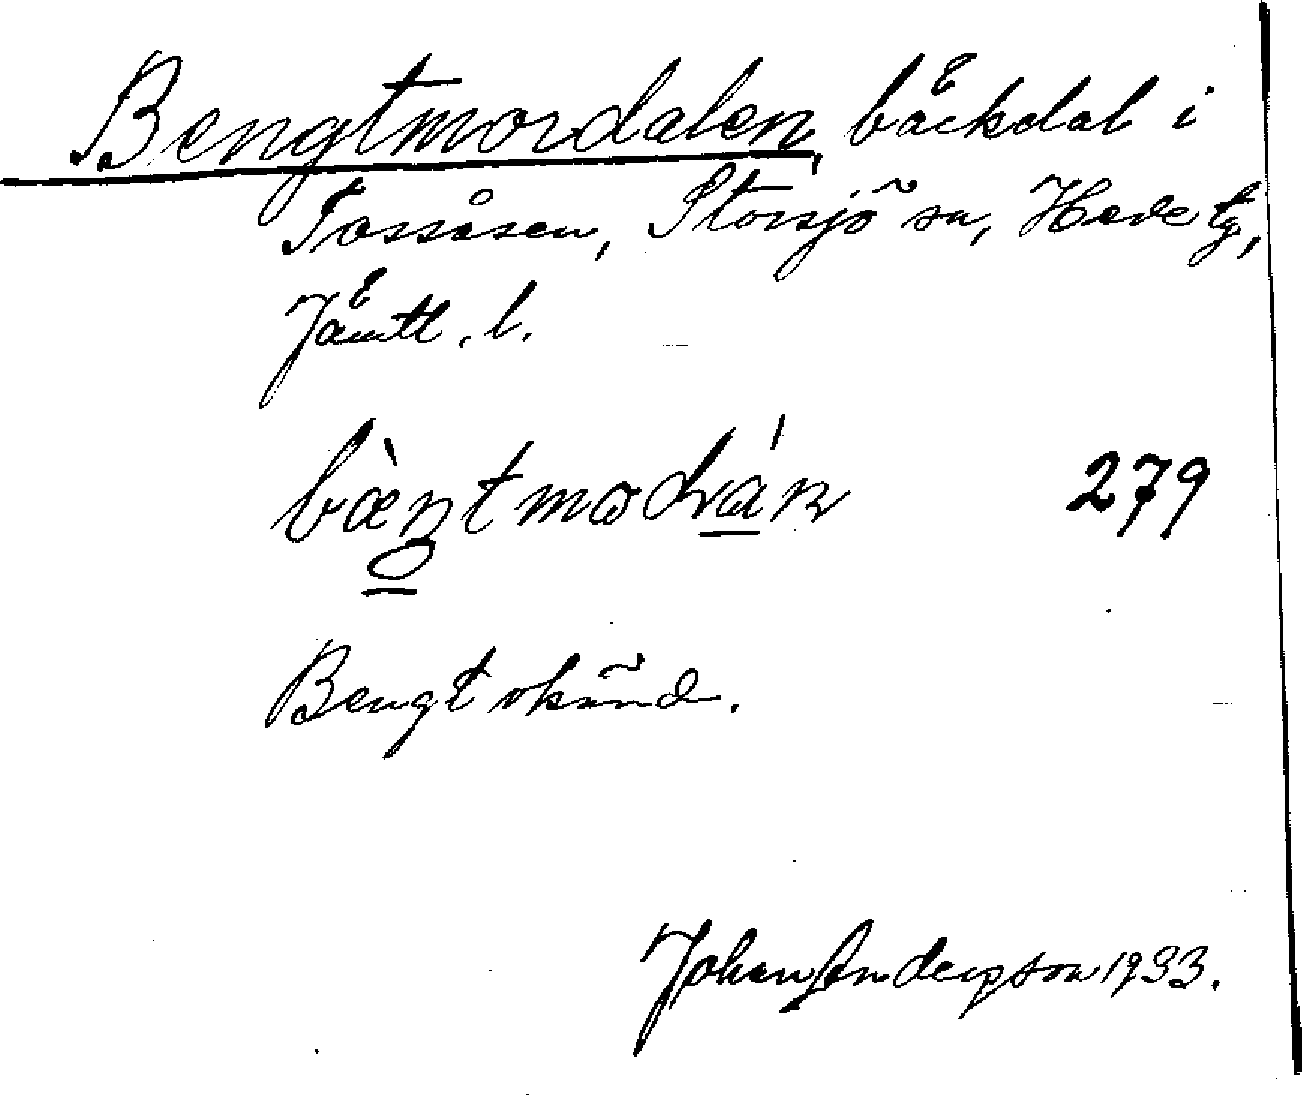 Bengtmordalen, bäckdal i
Tossåsen, Storsjö sn, Hede tg,
Jämtl. l.
279
Bengt okänd.
Johan Anderzson 1933.